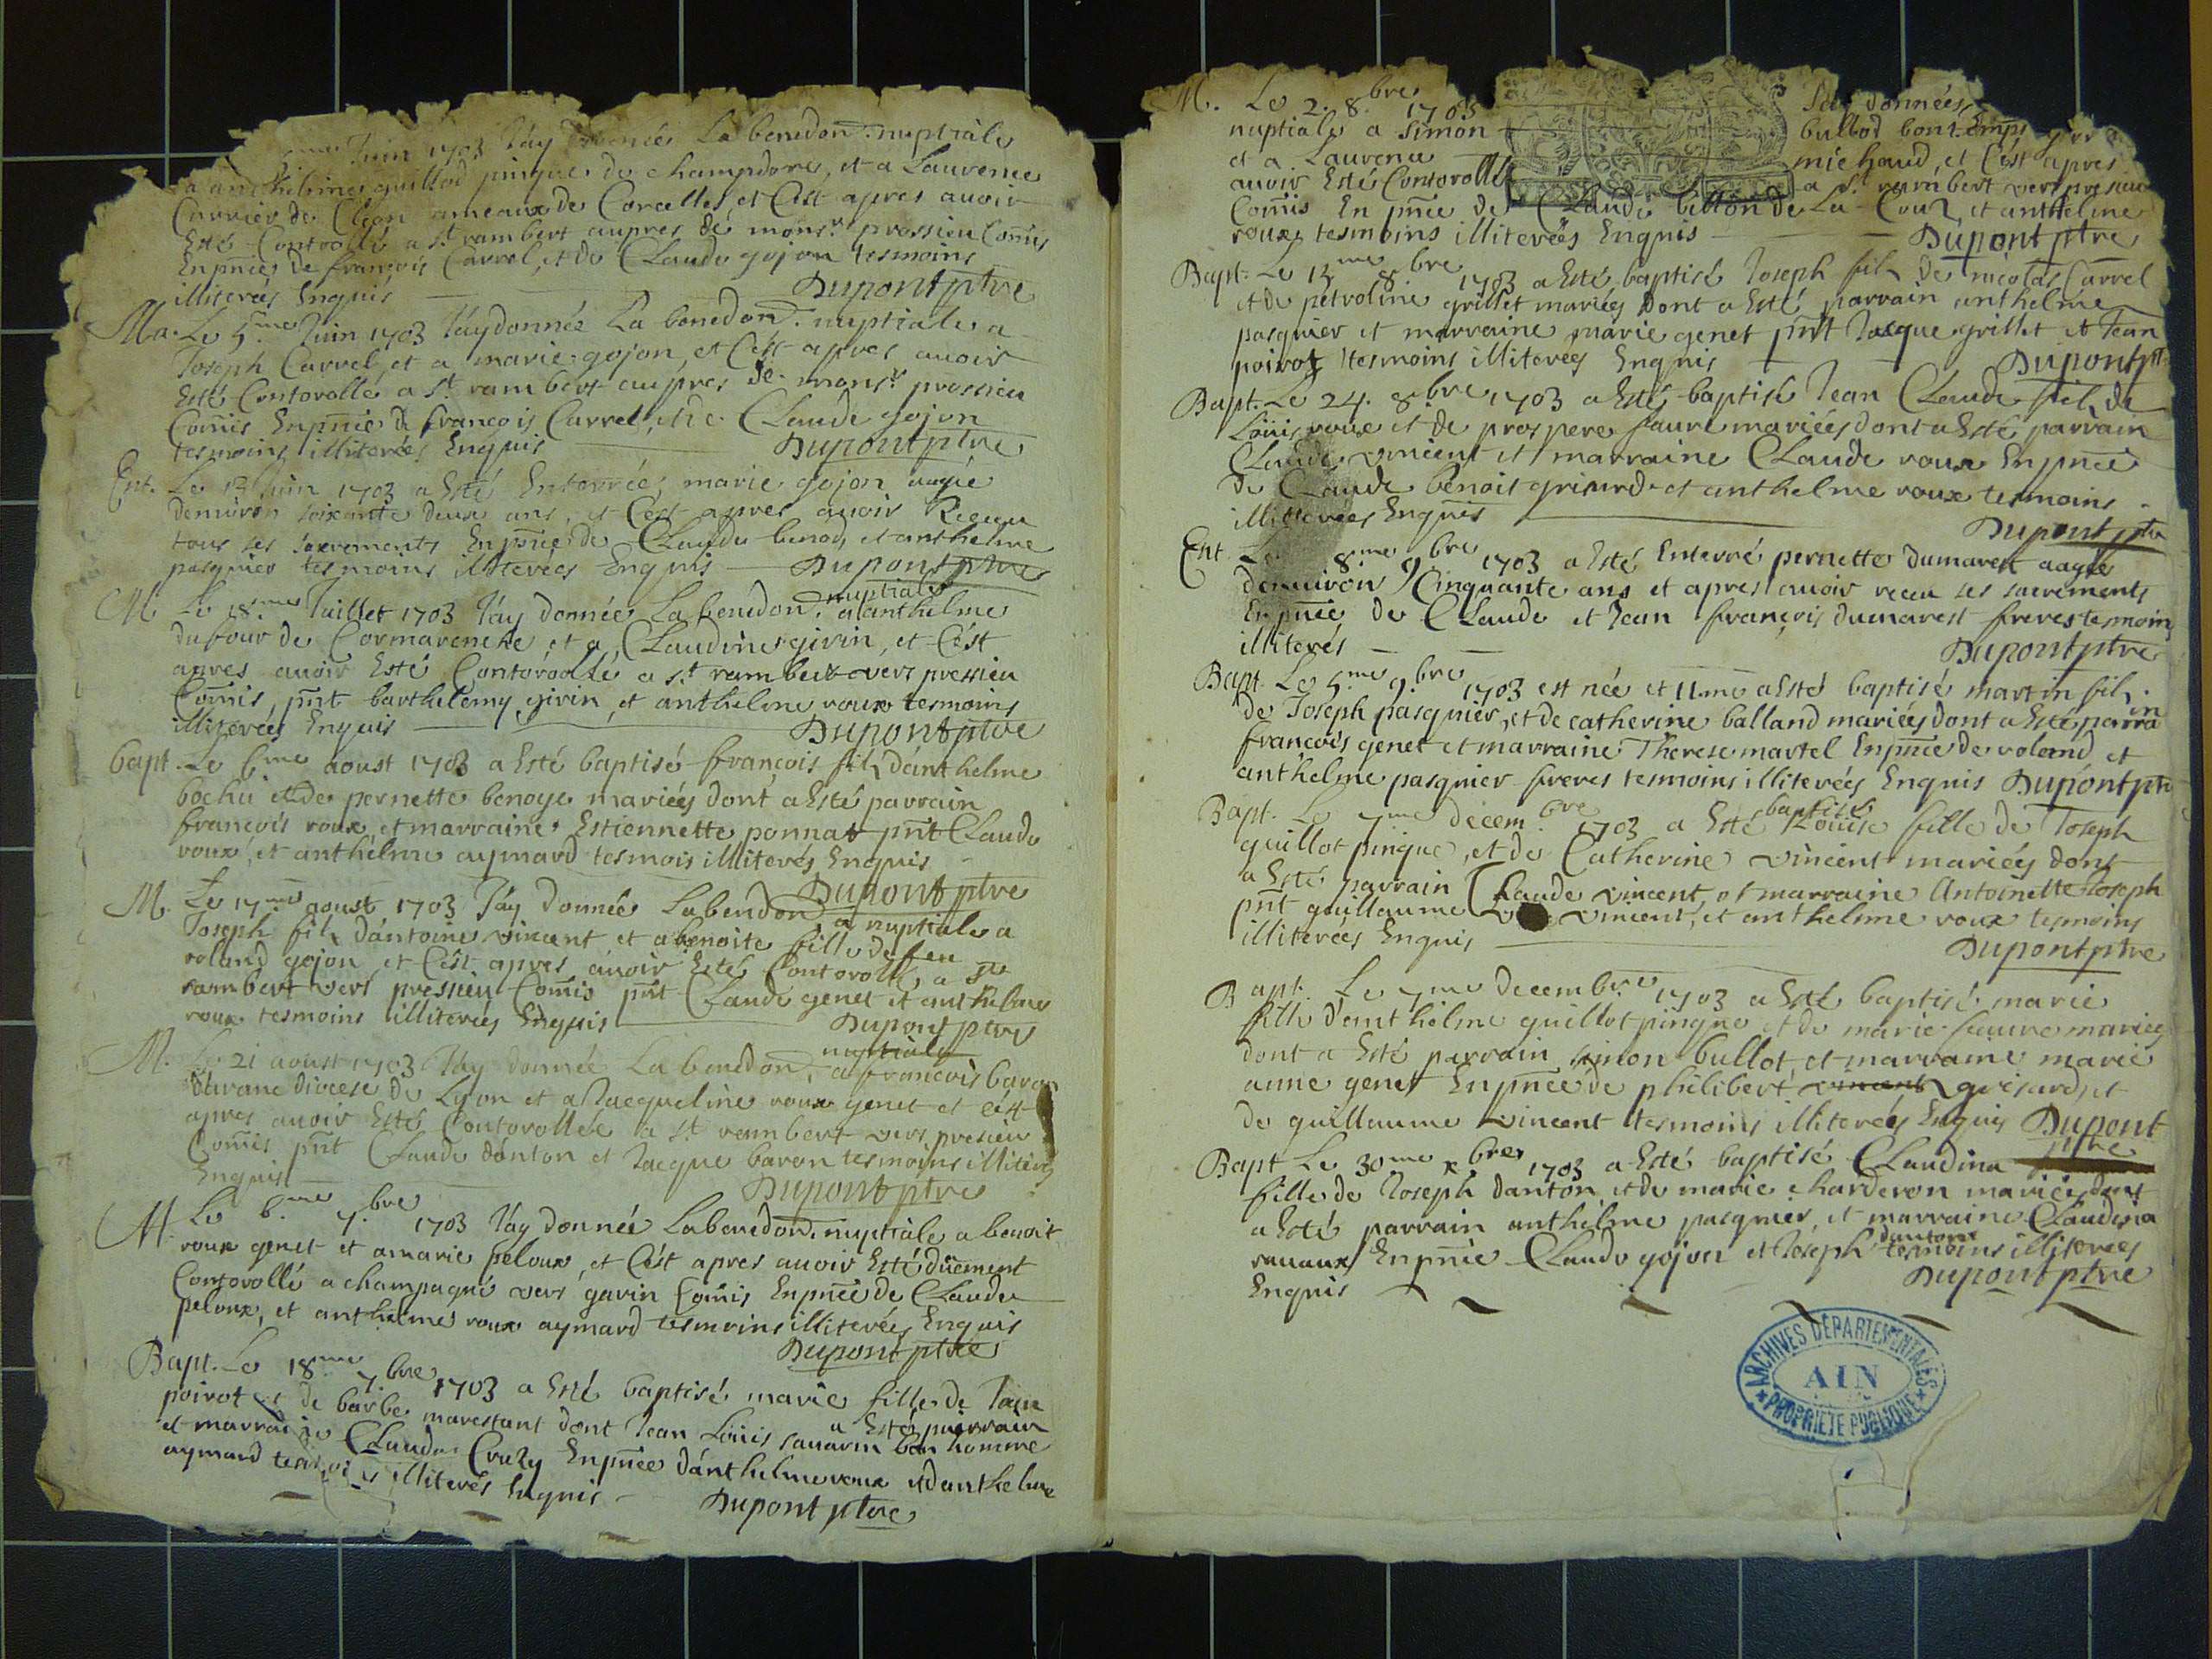 5.me Juin 1703 J'ay donnée La benedon. nuptiale
a anthelme guillod pingue de champdore, et a Laurence
Carrier de Cleon ameaux de Corcelles, et C'est apres avoir
Esté Contorollé a St rambert aupres de monsr. pressieu Com̄is
En pn̄ce de francois Carrel, et de Claude gojon tesmoins
illiterés Enquis Dupont ptre
Ma. Le 5.me Juin 1703 J'ay donnée La benedon. nuptiale a
Joseph Carrel, et a marie gojon, et C'est apres avoir
Esté Contorollé a St. rambert aupres de monsr. pressieu
Com̄is En pn̄ce de francois Carrel, et de Claude gojon
tesmoins illiterées Enquis Dupont ptre
Ent. Le 13 Juin 1703 a Esté Enterrée marie gojon aagée
d'enuiron soixante deux ans, et C'est apres avoir Receu
tous ses sacrements En pn̄ce de Claude benod, et anthelme
pasquier tesmoins illiterées Enquis Dupont ptre
M Le 18.me Juillet 1703 J'ay donnée La benedon. nuptiale a anthelme
dufour de Cormarenche, et a Claudine girin, et C'est
apres auoir Esté Contoroollé a St. rambert vers pressieu
Com̄is, pn̄t barthelemy girin, et anthelme roux tesmoins
illiterées Enquis Dupont ptre
bapt. Le 6.me aoust 1703 a Esté baptisé francois fils d'anthelme
bochu et de pernette benoye mariées dont a Esté parrain
francois roux, et marraine Estiennette ponnat pn̄t Claude
roux, et anthelme aymard tesmois illiterés Enquis
Dupont ptre
M. Le 17.me aoust 1703 J'ay donnée La benedon nuptiale a
Joseph fils d'antoine vincent et a benoite fille de feu
roland gojon, et C'est apres avoir Esté Contorollé a St
rambert vers pressieu Com̄is pn̄t Claude genet et anthelme
roux tesmoins illiterées Enquis Dupont ptre
M. Le 21 aoust 1703 J'ay donnée La benedon. nuptiale a francois baron
d'arane diocese de Lyon et a Jacqueline roux genet et c'est
apres avoir Esté Contorollée a St. rambert vers presieu
Com̄is pn̄t Claude danton et Jacque baron tesmoins illiterés
Enquis Dupont ptre
M Le 6.me 7.bre 1703 J'ay donnée La benedon. nuptiale a benoit
roux genet et a marie peloux, et C'est apres auoir Esté düement
Contorollé a champagne vers gavin Com̄is En pn̄ce de Claude
peloux, et anthelme roux aymard tesmoins illiterées Enquis
Dupont ptre
Bapt. Le 18.me 7.bre 1703 a Esté baptisé marie fille de Jean
poirot et de barbe marestant dont Jean Loüis sauarin bon homme a Esté parrain
et marraine Clauda Cruzy En pn̄ce d'anthelme roux et d'anthelme
aymard tesmoins illiterés Enquis
Dupont ptre
M. Le 2. 8.bre 1703 J'ay données
nuptiale a Simon bullod bontemps
et a Laurence michaud, et C'est apres
auoir Esté Contorollé a St. rambert vers presieu
Com̄is En pn̄ce de Claude billon de La Cour, et anthelme
roux tesmoins illiterées Enquis Dupont ptre
Bapt. Le 13.me 8.bre 1703 a Esté baptisé Joseph fils de nicolas Carrel
et de petroline grillet mariées dont a Esté parrain anthelme
pasquier et marraine marie genet pn̄t Jacque grillet et Jean
poirot tesmoins illiterées Enquis Dupont pt
Bapt. Le 24. 8.bre 1703 a Esté baptisé Jean Claude fils de
Loüis roux et de prospere faure mariées dont a Esté parrain
Claude vincent et marraine Claude roux En pn̄ce
de Claude benoit grisard et anthelme roux tesmoins
illiterées Enquis Dupont ptre
Ent. Le 8.me 9.bre 1703 a Esté Enterré pernette dumarest aagée
d'enuiron Cinquante ans et apres auoir receu ses sacrements
En pn̄ce de Claude et Jean francois dumarest freres tesmoins
illiterés Dupont ptre
Bapt. Le 5.me 9.bre 1703 est née et 11.me a Esté baptisé martin fils
de Joseph pasquier, et de catherine balland mariées dont a Esté parrain
francois genet et marraine Therese martel En pn̄ce de roland et
anthelme pasquier freres tesmoins illiterées Enquis Dupont ptr
Bapt. Le 7.me decem.bre 1703 a Esté baptisé Louise fille de Joseph
guillot pingue, et de Catherine vincent mariées dont
a Esté parrain Claude vincent, et marraine Antoinette Joseph
pn̄t guillaume vincent, et anthelme roux tesmoins
illiterées Enquis Dupont ptre
Bapt. Le 7.me decembre 1703 a Esté baptisé marie
fille d'anthelme guillot pingue et de marie faure mariées
dont a Esté parrain simon bullot, et marraine marie
anne genet En pn̄ce de philibert vincent grisard, et
de guillaume vincent tesmoins illiterées Enquis Dupont
ptre
Bapt Le 30.me x.bre 1703 a Esté baptisé Claudina
fille de Joseph danton et de marie charderon mariées dont
a Esté parrain anthelme pasquier, et marraine Claudina
rauaux En pn̄ce Claude gojon et Joseph danton tesmoins illiterées
Enquis Dupont ptre
ARCHIVES DÉPARTEMENTALES
AIN
PROPRIETE PUBLIQUE